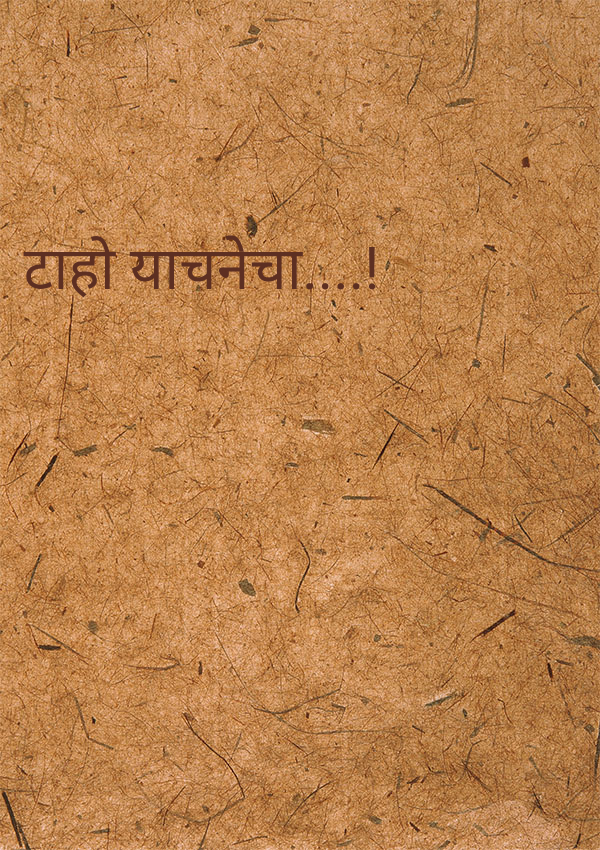 टाहो याचनेचा....!